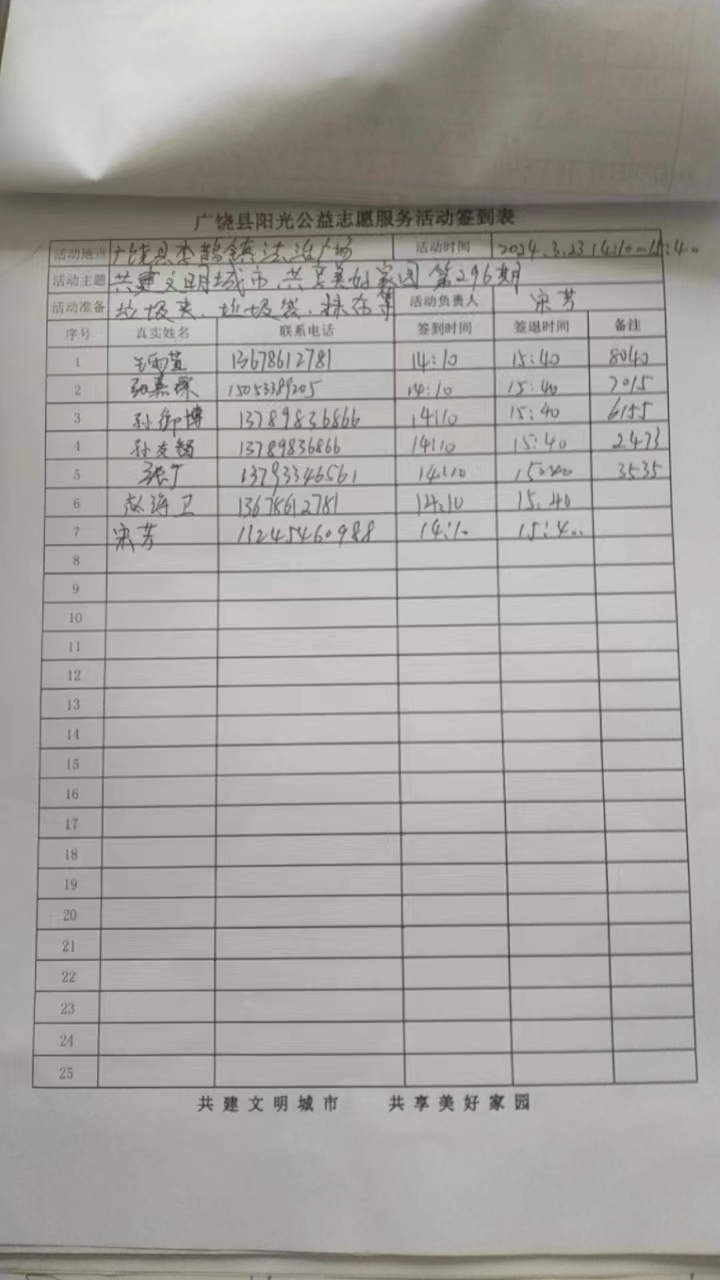 广饶县阳光公益志愿服务活动签到表
活动地点 广饶县李鹊镇法治广场 活动时间 2024.3.23 14:10-15:40
活动主题 共建文明城市、共享美好家园 第296期
活动准备 垃圾夹、垃圾袋、抹布等 活动负责人 宋芳
序号 真实姓名 联系电话 签到时间 签退时间 备注
1 13678612781 14:10 15:40 8040
2 15053389205 14:10 15:40 7015
3 孙御博 13789836866 14:10 15:40 6155
4 孙友 13789836866 14:10 15:40 2473
5 13793346561 14:10 15:40 3535
6 赵海卫 13678612781 14:10 15.40
7 宋芳 11245460988 14:10 15:40
8
9
10
11
12
13
14
15
16
17
18
19
20
21
22
23
24
25
共建文明城市 共享美好家园